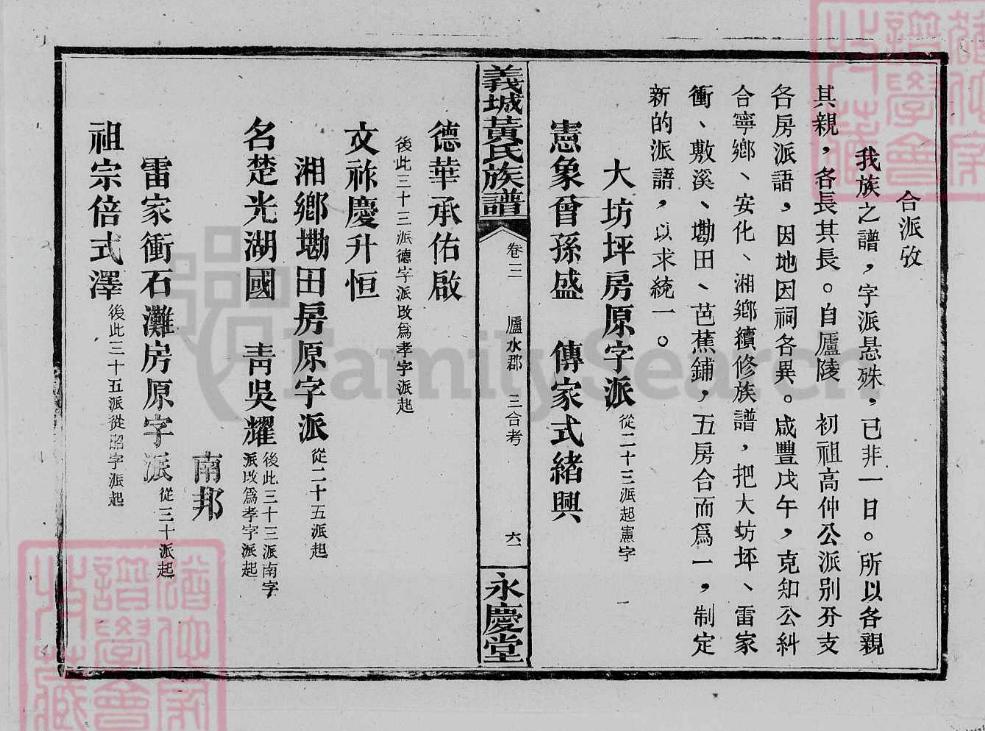 合派攷
我族之譜，字派悬殊，已非一日。所以各親
其親，各長其長。自廬陵 初祖高仲公派别分支
各房派語，因地因祠各異。咸豐戊午，克知公糾
合寧鄉、安化、湘鄉續修族譜，把大坊坪、雷家
衝、敷溪、墈田、芭蕉鋪，五房合而爲一，制定
新的派語，以求統一。
大坊坪房原字派 從二十三派起憲字
憲象曾孫盛 傳家式緒興
義城黃氏族譜 卷三 廬水郡 三合考 六 永慶堂
德華承佑啟
後此三十三派德字派改爲孝字派起
文祚慶升恒
湘鄉墈田房原字派 從二十五派起
名楚光湖國 青吳耀 後此三十三派南字
派改爲孝字派起
南邦
雷家衝石灘房原字派 從三十派起
祖宗倍式澤 後此三十五派從昭字派起
FamilySearch